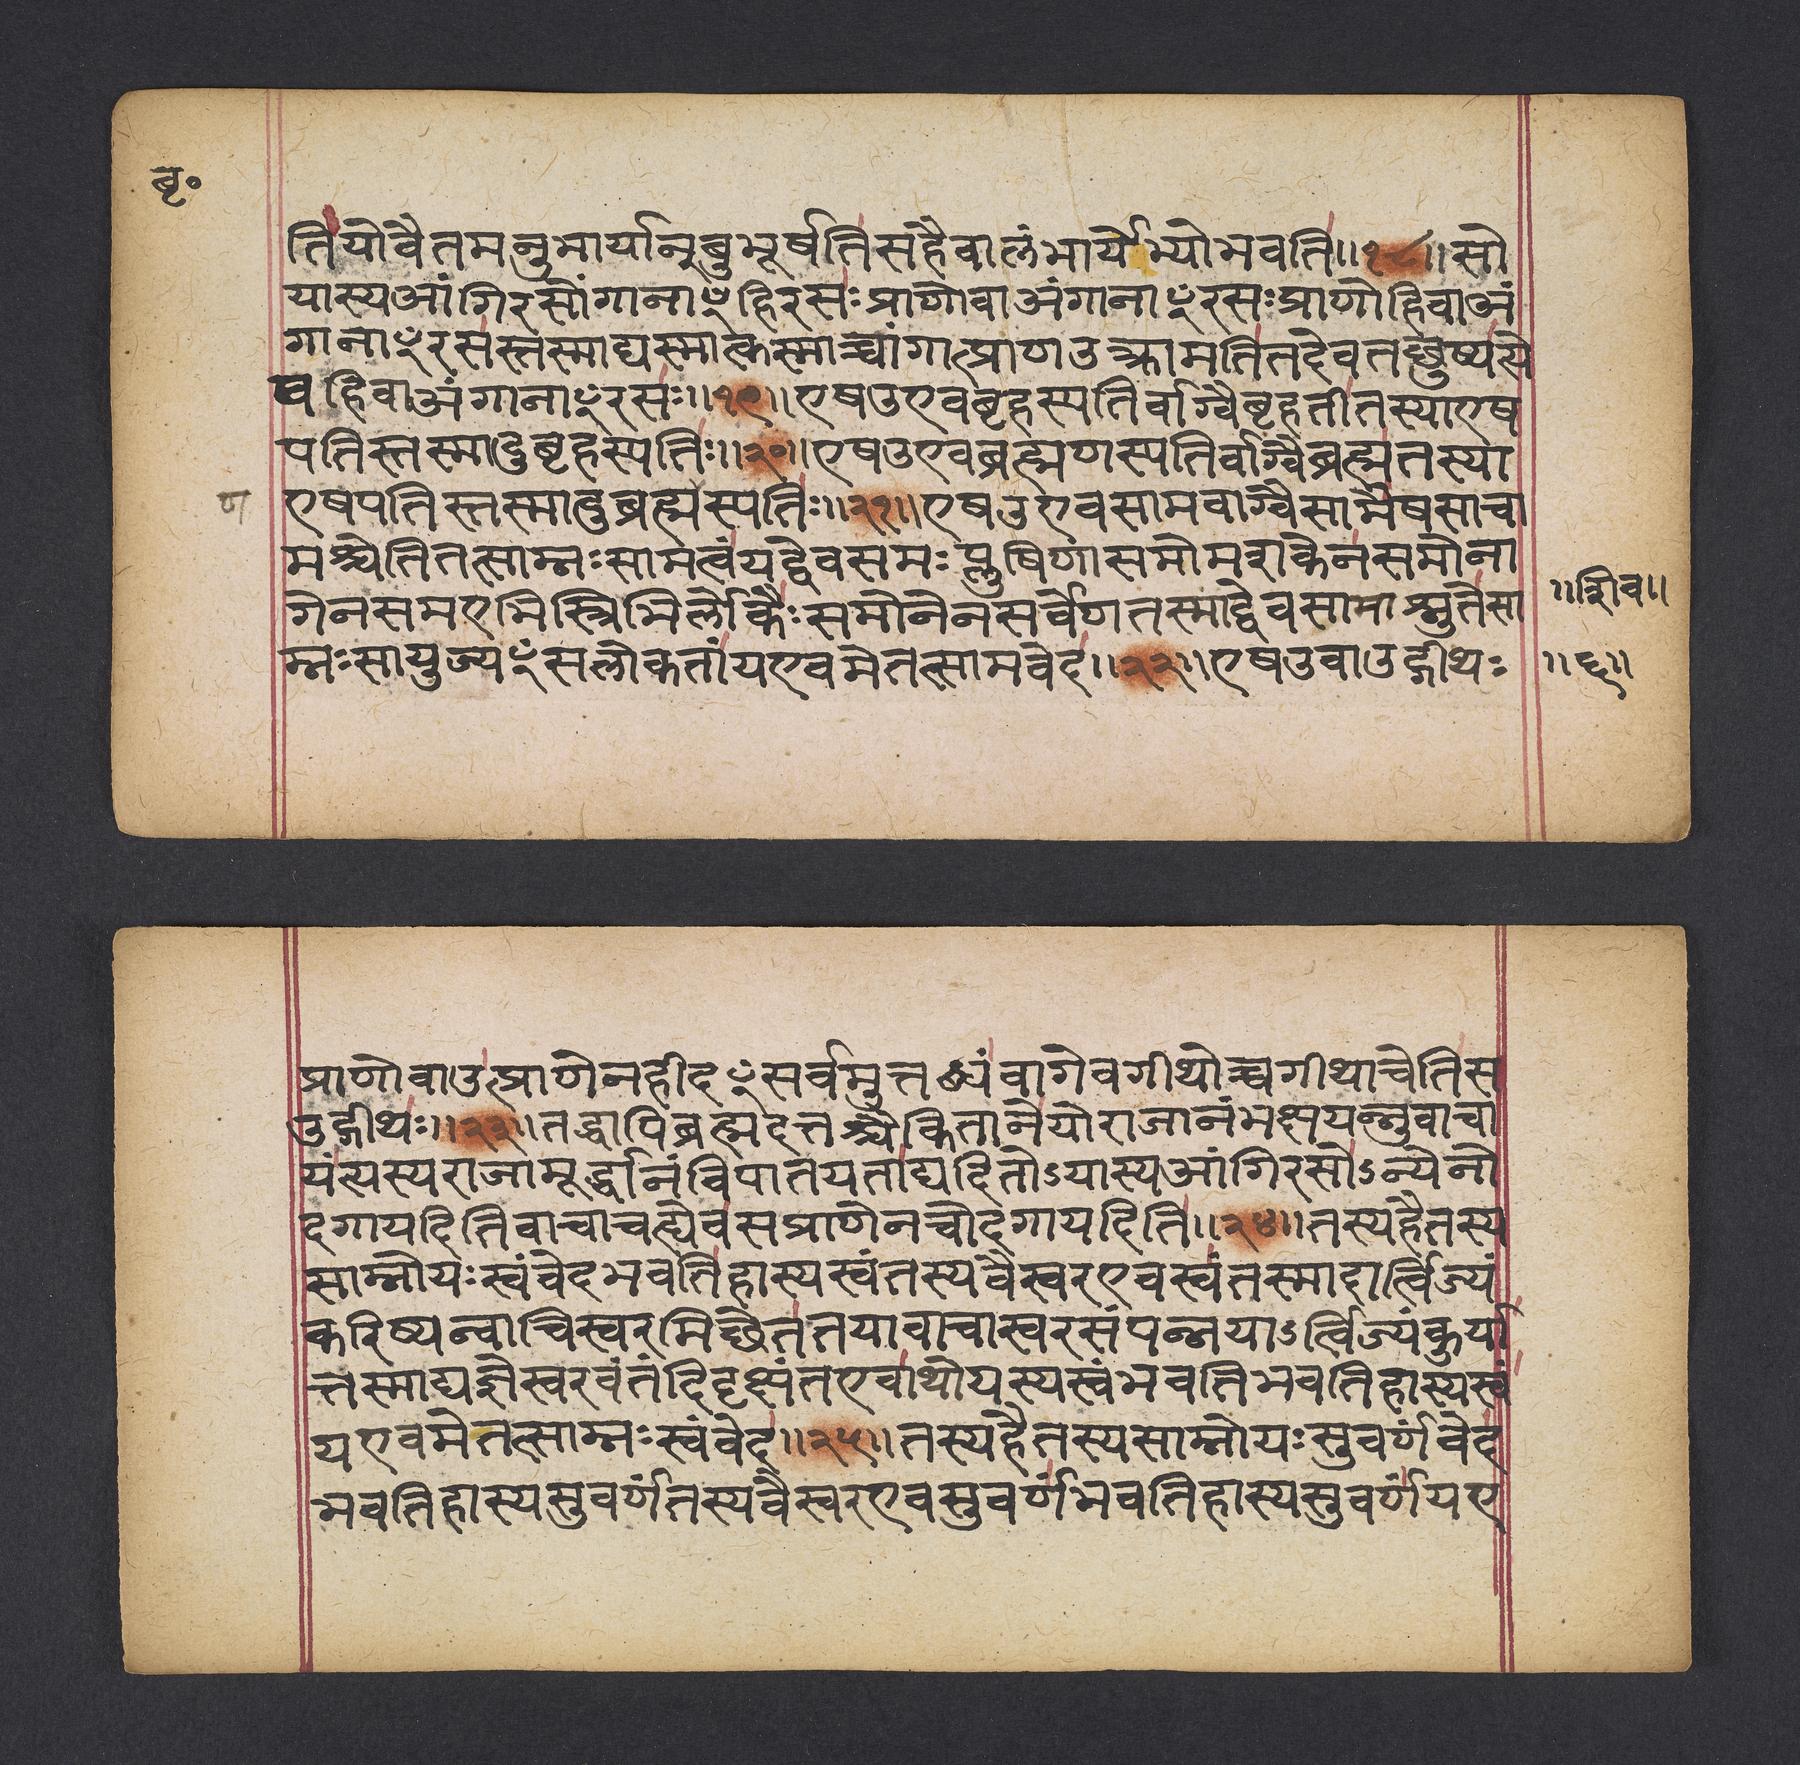 बृ॰
तियोवैतमनुभार्यानुबुभूर्षतिसहैवालंभार्येभ्योभवति॥१८॥सो
यास्यआंगिरसोंगानाꣳहिरसःप्राणोवाअंगानाꣳरसःप्राणोहिवाअं
गानाꣳरसस्तस्माद्यस्मात्कस्माच्चांगात्प्राणउत्क्रामतितदेवतछुष्यत्ये
षहिवाअंगानाꣳरसः॥१९॥एषउएवबृहस्पतिर्वाग्वैबृहतीतस्याएष
पतिस्तस्मादुबृहस्पतिः॥२०॥एषउएवब्रह्मणस्पतिर्वाग्वैब्रह्मतस्या
ण
एषपतिस्तस्मादुब्रह्मस्पतिः॥२१॥एषउएवसामवाग्वैसामैषसाचा
मश्चेतितत्साम्नःसामत्वंयद्वेवसमःप्लुषिणासमोमशकेनसमोना
गेनसमएभिस्त्रिभिर्लोकैःसमोनेनसर्वेणतस्माद्वेवसामाश्नुतेसा
॥शिव॥
म्नःसायुज्यꣳसलोकतांयएवमेतत्सामवेद॥२२॥एषउवाउद्गीथः
॥६॥
प्राणोवाउत्प्राणेनहीदꣳसर्वमुत्तब्धंवागेवगीथोच्चगीथाचेतिस
उद्गीथः॥२३॥तद्धापिब्रह्मदत्तश्चैकितानेयोराजानंभक्षयन्नुवाचा
यंत्यस्यराजामूर्द्धानंविपातयताद्यदितोऽयास्यआंगिरसोऽन्येनो
दगायदितिवाचाचह्येवसप्राणेनचोदगायदिति॥२४॥तस्यहैतस्य
साम्नोयःस्वंवेदभवतिहास्यस्वंतस्यवैस्वरएवस्वंतस्मादार्त्विज्यं
करिष्यन्वाचिस्वरमिछेततयावाचास्वरसंपन्नयाऽर्त्विज्यंकुर्या
त्तस्माद्यज्ञेस्वरवंतंदिदृक्षंतएवाथोयस्यस्वंभवतिभवतिहास्यस्वं
यएवमेतत्साम्नःस्वंवेद॥२५॥तस्यहैतस्यसाम्नोयःसुवर्णंवेद
भवतिहास्यसुवर्णंतस्यवैस्वरएवसुवर्णंभवतिहास्यसुवर्णंयए